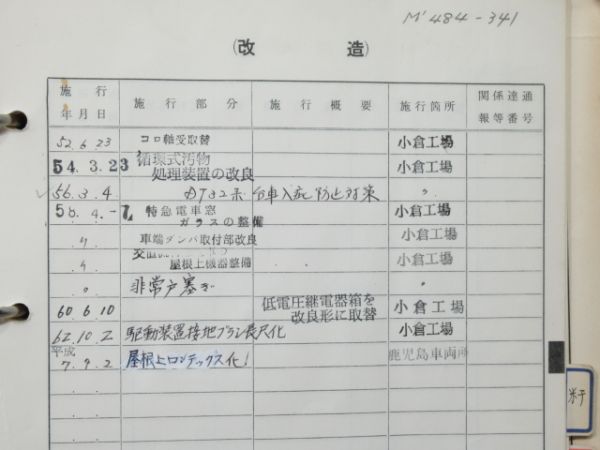 M'484-341
(改造)
施行年月日 施行部分 施行概要 施行箇所 関係達通報等番号
52.6.23 コロ軸受取替 小倉工場
54.3.23 循環式汚物処理装置の改良 小倉工場
56.3.4 DT32系台車入症防止対策 〃
58.4.-7 特急電車窓ガラスの整備 小倉工場
〃 車端ダンパ取付部改良 小倉工場
〃 屋根上機器整備 小倉工場
〃 非常戸塞ぎ 〃
60.6.10 低電圧継電器箱を改良形に取替 小倉工場
62.10.2 駆動装置接地ブラシ長尺化 小倉工場
平成
7.9.2 屋根上ロンテックス化! 鹿児島車両所